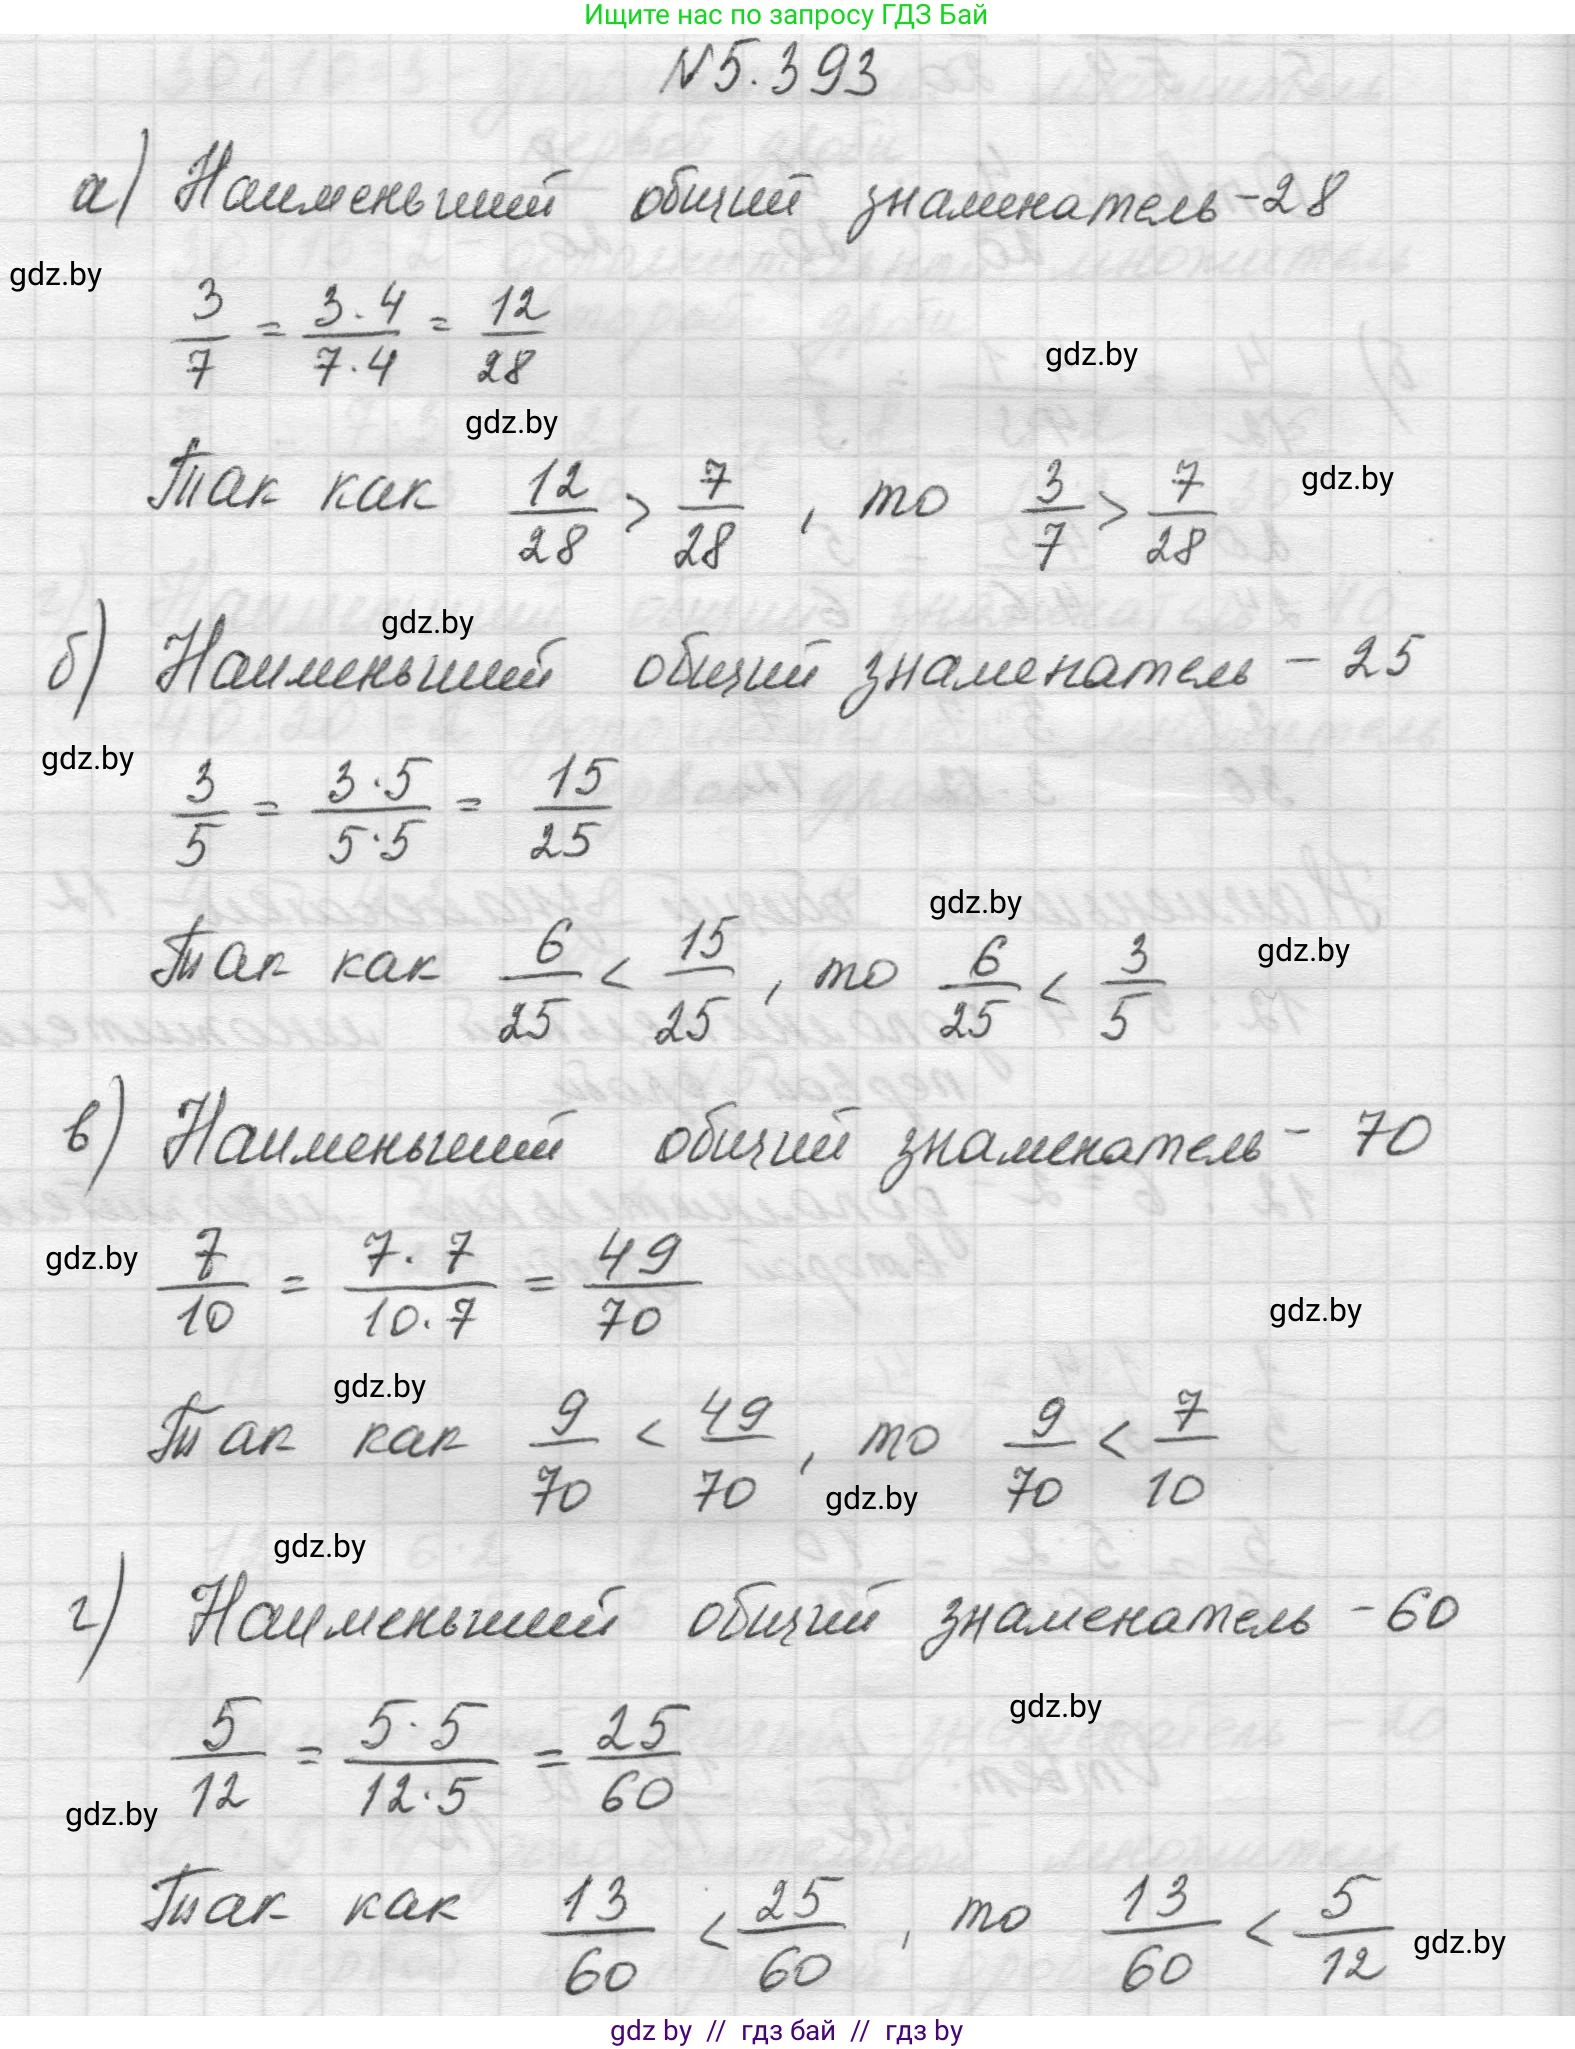 Ищите нас по запросу ГДЗ Бай
№5.393
а) Наименьший общий знаменатель - 28
gdz.by
3/7 = 3·4/7·4 = 12/28
gdz.by
gdz.by
Так как 12/28 > 7/28, то 3/7 > 7/28
gdz.by
gdz.by
б) Наименьший общий знаменатель - 25
gdz.by
3/5 = 3·5/5·5 = 15/25
gdz.by
Так как 6/25 < 15/25, то 6/25 < 3/5
gdz.by
в) Наименьший общий знаменатель - 70
gdz.by
7/10 = 7·7/10·7 = 49/70
gdz.by
gdz.by
Так как 9/70 < 49/70, то 9/70 < 7/10
gdz.by
gdz.by
г) Наименьший общий знаменатель - 60
gdz.by
5/12 = 5·5/12·5 = 25/60
gdz.by
Так как 13/60 < 25/60, то 13/60 < 5/12
gdz.by
gdz by // гдз бай // гдз by